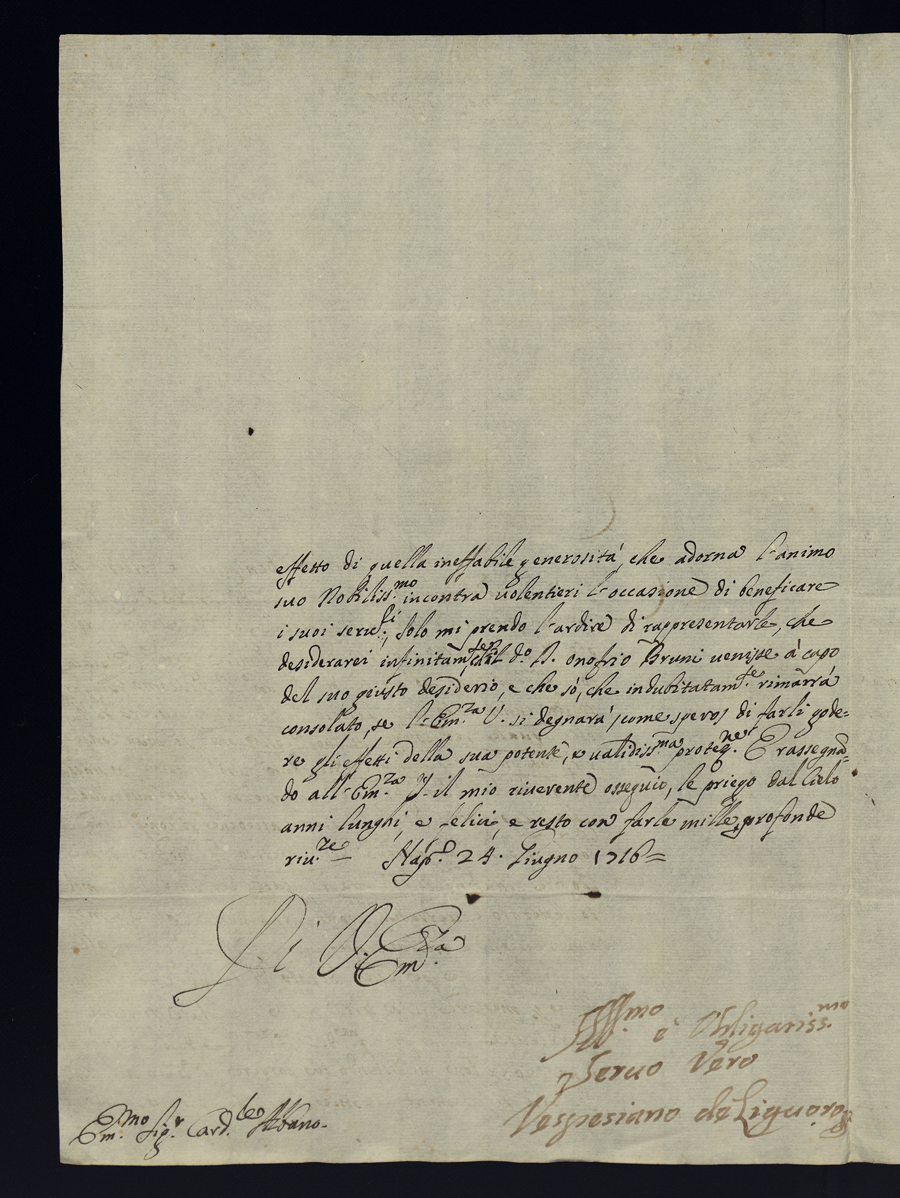 effetto di quella ineffabile generosità, che adorna l'animo
suo Nobiliss.mo incontra volentieri l'occasione di beneficare
i suoi seru.ri, solo mi prendo l'ardire di rappresentarle, che
desiderarei infinitam.te, ch'il d.o D. Onofrio Bruni uenisse à capo
del suo giusto desiderio, e che sò, che indubitatam.te rimarrà
consolato, se l'Em.za V. si degnarà, come spero, di farli gode=
re gli effetti della sua potente, e ualidiss.ma protez.ne E rassegnā=
do all'Em.za V. il mio riuerente osseguio, le priego dal Cielo
anni lunghi, e felici, e resto con farle mille profonde
riu.ze Nap. 24. Giugno 1716=
Di V. Em.za
Aff.mo è Obligariss.mo
Seruo Vero
Vespesiano de Liguoro
Em.mo Sig.r Card.le Albano.